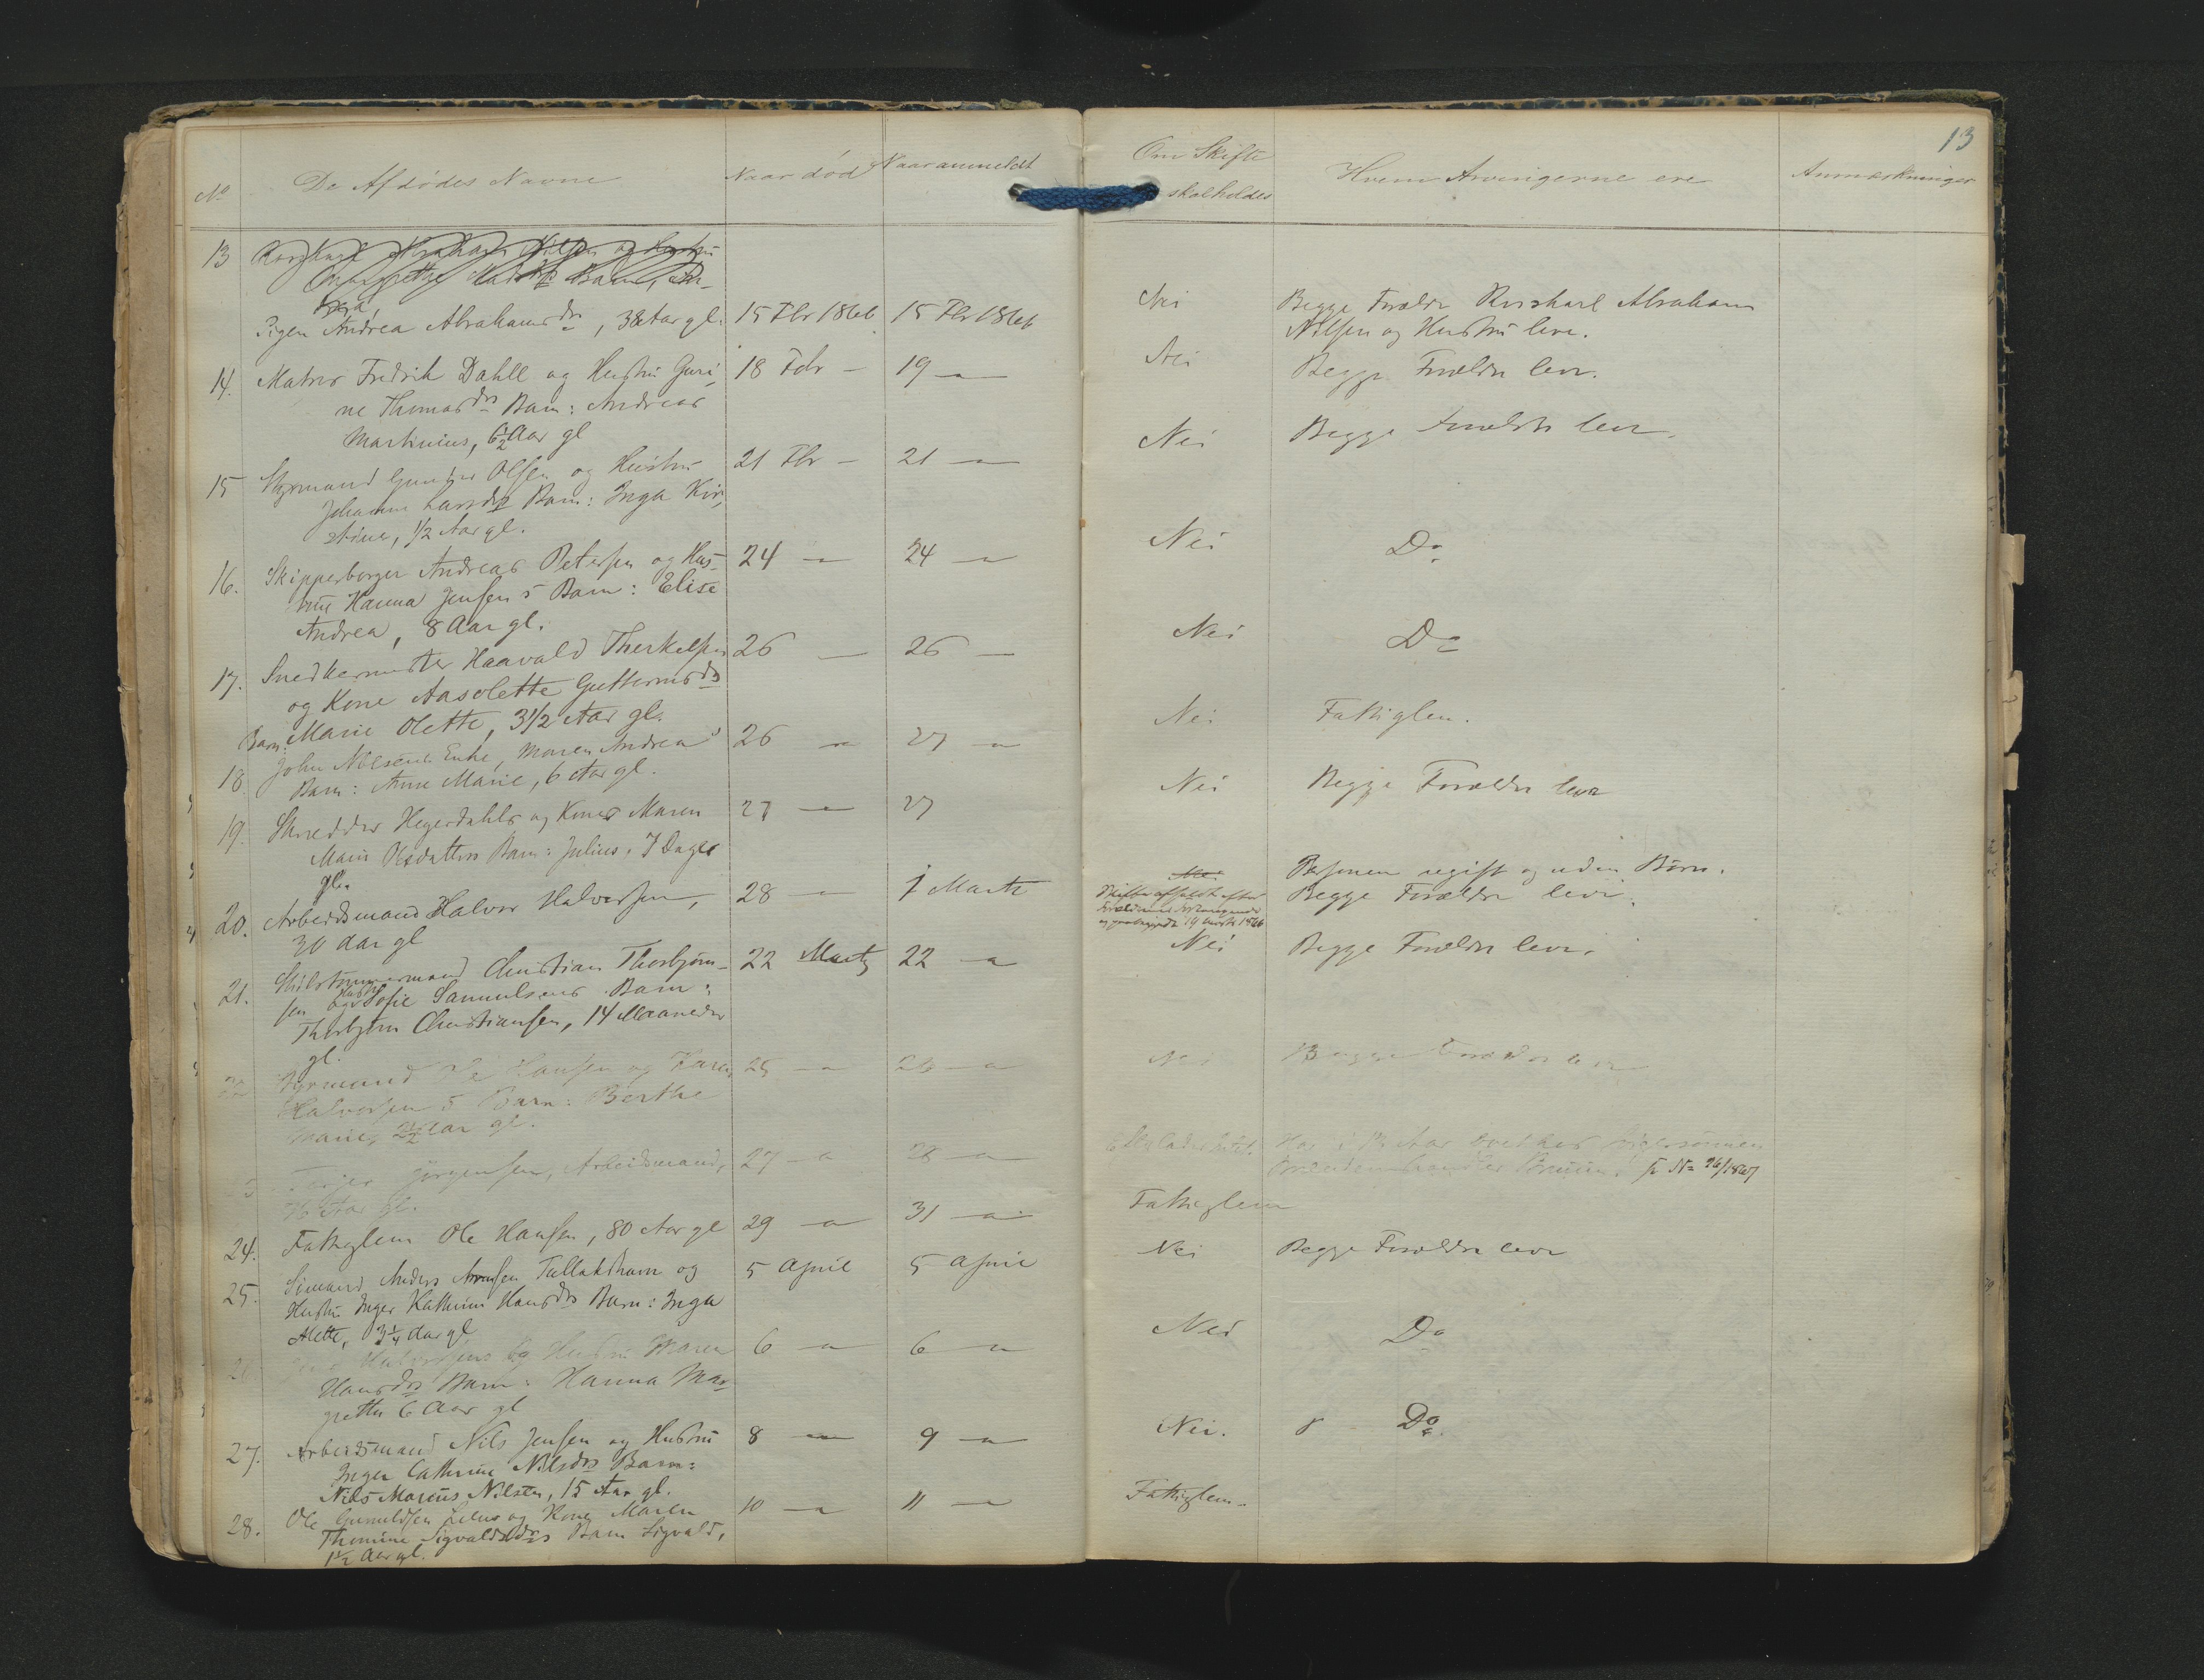 13
No
De Afdødes Navne
Naar død
Naar anmeldt
Om Skifte
skal holdes
Hvem Arvingerne ere
Anmærkninger
13
Pigen Andrea Abrahamsdr, 38 Aar gl.
15 Fbr 1866
15 Fbr 1866
Nei
Begge Forældre Abraham
Nilsen og Hustru leve.
14. Matros Fredrik Dahll og Hustru Guri-
ne Thomasdrs Barn: Andreas
Martinius, 6½ Aar gl
18 Febr —
19 —
Nei
Begge Forældre leve.
15 Styrmand Gunder Olsen og Hustru
Johanne Larsdrs Barn: Inga Kir-
stine, 1/2 Aar gl.
21 Fbr —
21 —
Nei
Begge Forældre leve.
16. Skipperborger Andreas Petersen og Hus-
tru Hanna Jensens Barn: Elise
Andrea, 8 Aar gl.
24 —
24 —
Nei
Do
17. Snedkermester Haavald Therkelsen
og Kone Aasolette Guttormsdrs
Barn: Marie Olette, 3 1/2 Aar gl.
26 —
26 —
Nei
Do
18 John Nilsens Enke, Maren Andreas
Barn: Anne Marie, 6 Aar gl.
26 —
27 —
Nei
Fattiglem.
19. Skredder Hegerdahls og Kones Maren
Marie Olsdatters Barn: Julius, 7 Dage
gl.
27 —
27
Nei
Begge Forældre leve
20. Arbeidsmand Halvor Halvorsen,
30 Aar gl
28 —
1 Marts
Nei
Skifte afholdt efter
Forældrenes Forlangende
og paabegyndt 19 Marts 1866
Personen ugift og uden Børn.
Begge Forældre leve.
21. Skibstømmermand Christian Thorbjørn-
sen og Hustru Sofie Samuelsens Barn:
Thorbjørn Christiansen, 14 Maaneder
gl.
22 Marts
22 —
Nei
Begge Forældre leve.
22 Styrmand Ole Hansen og Karen
Halvorsens Barn: Berthe
Marie, 2½ Aar gl.
25 —
Nei
Begge Forældre leve
23 Terjer Jørgensen, Arbeidsmand,
Aar gl.
27 —
28 —
Har i Aar
No 26/1867
24. Fattiglem Ole Hansen, 80 Aar gl
29 —
31 —
Fattiglem
25. Sømand Anders Tallakshavn og
Hustru Inger Kathrine Hansdrs Barn: Inga
Alette, 3¼ Aar gl
5 April
5 April
Nei
Begge Forældre leve
26 Halvorsens og Hustru Maren
Hansdrs Barn: Hanna Mar-
grethe 6 Aar gl
6 —
6 —
Nei
Do
27. Arbeidsmand Nils Jensen og Hustru
Inger Cathrine Nilsdrs Barn:
Nils Marcus Nilsen, 15 Aar gl.
8 —
9 —
Nei.
Do.
28. Ole Gunuldsen og Kone Maren
Thomine Sigvaldsdrs Barn Sigvald,
1½ Aar gl.
10 —
11 —
Fattiglem.